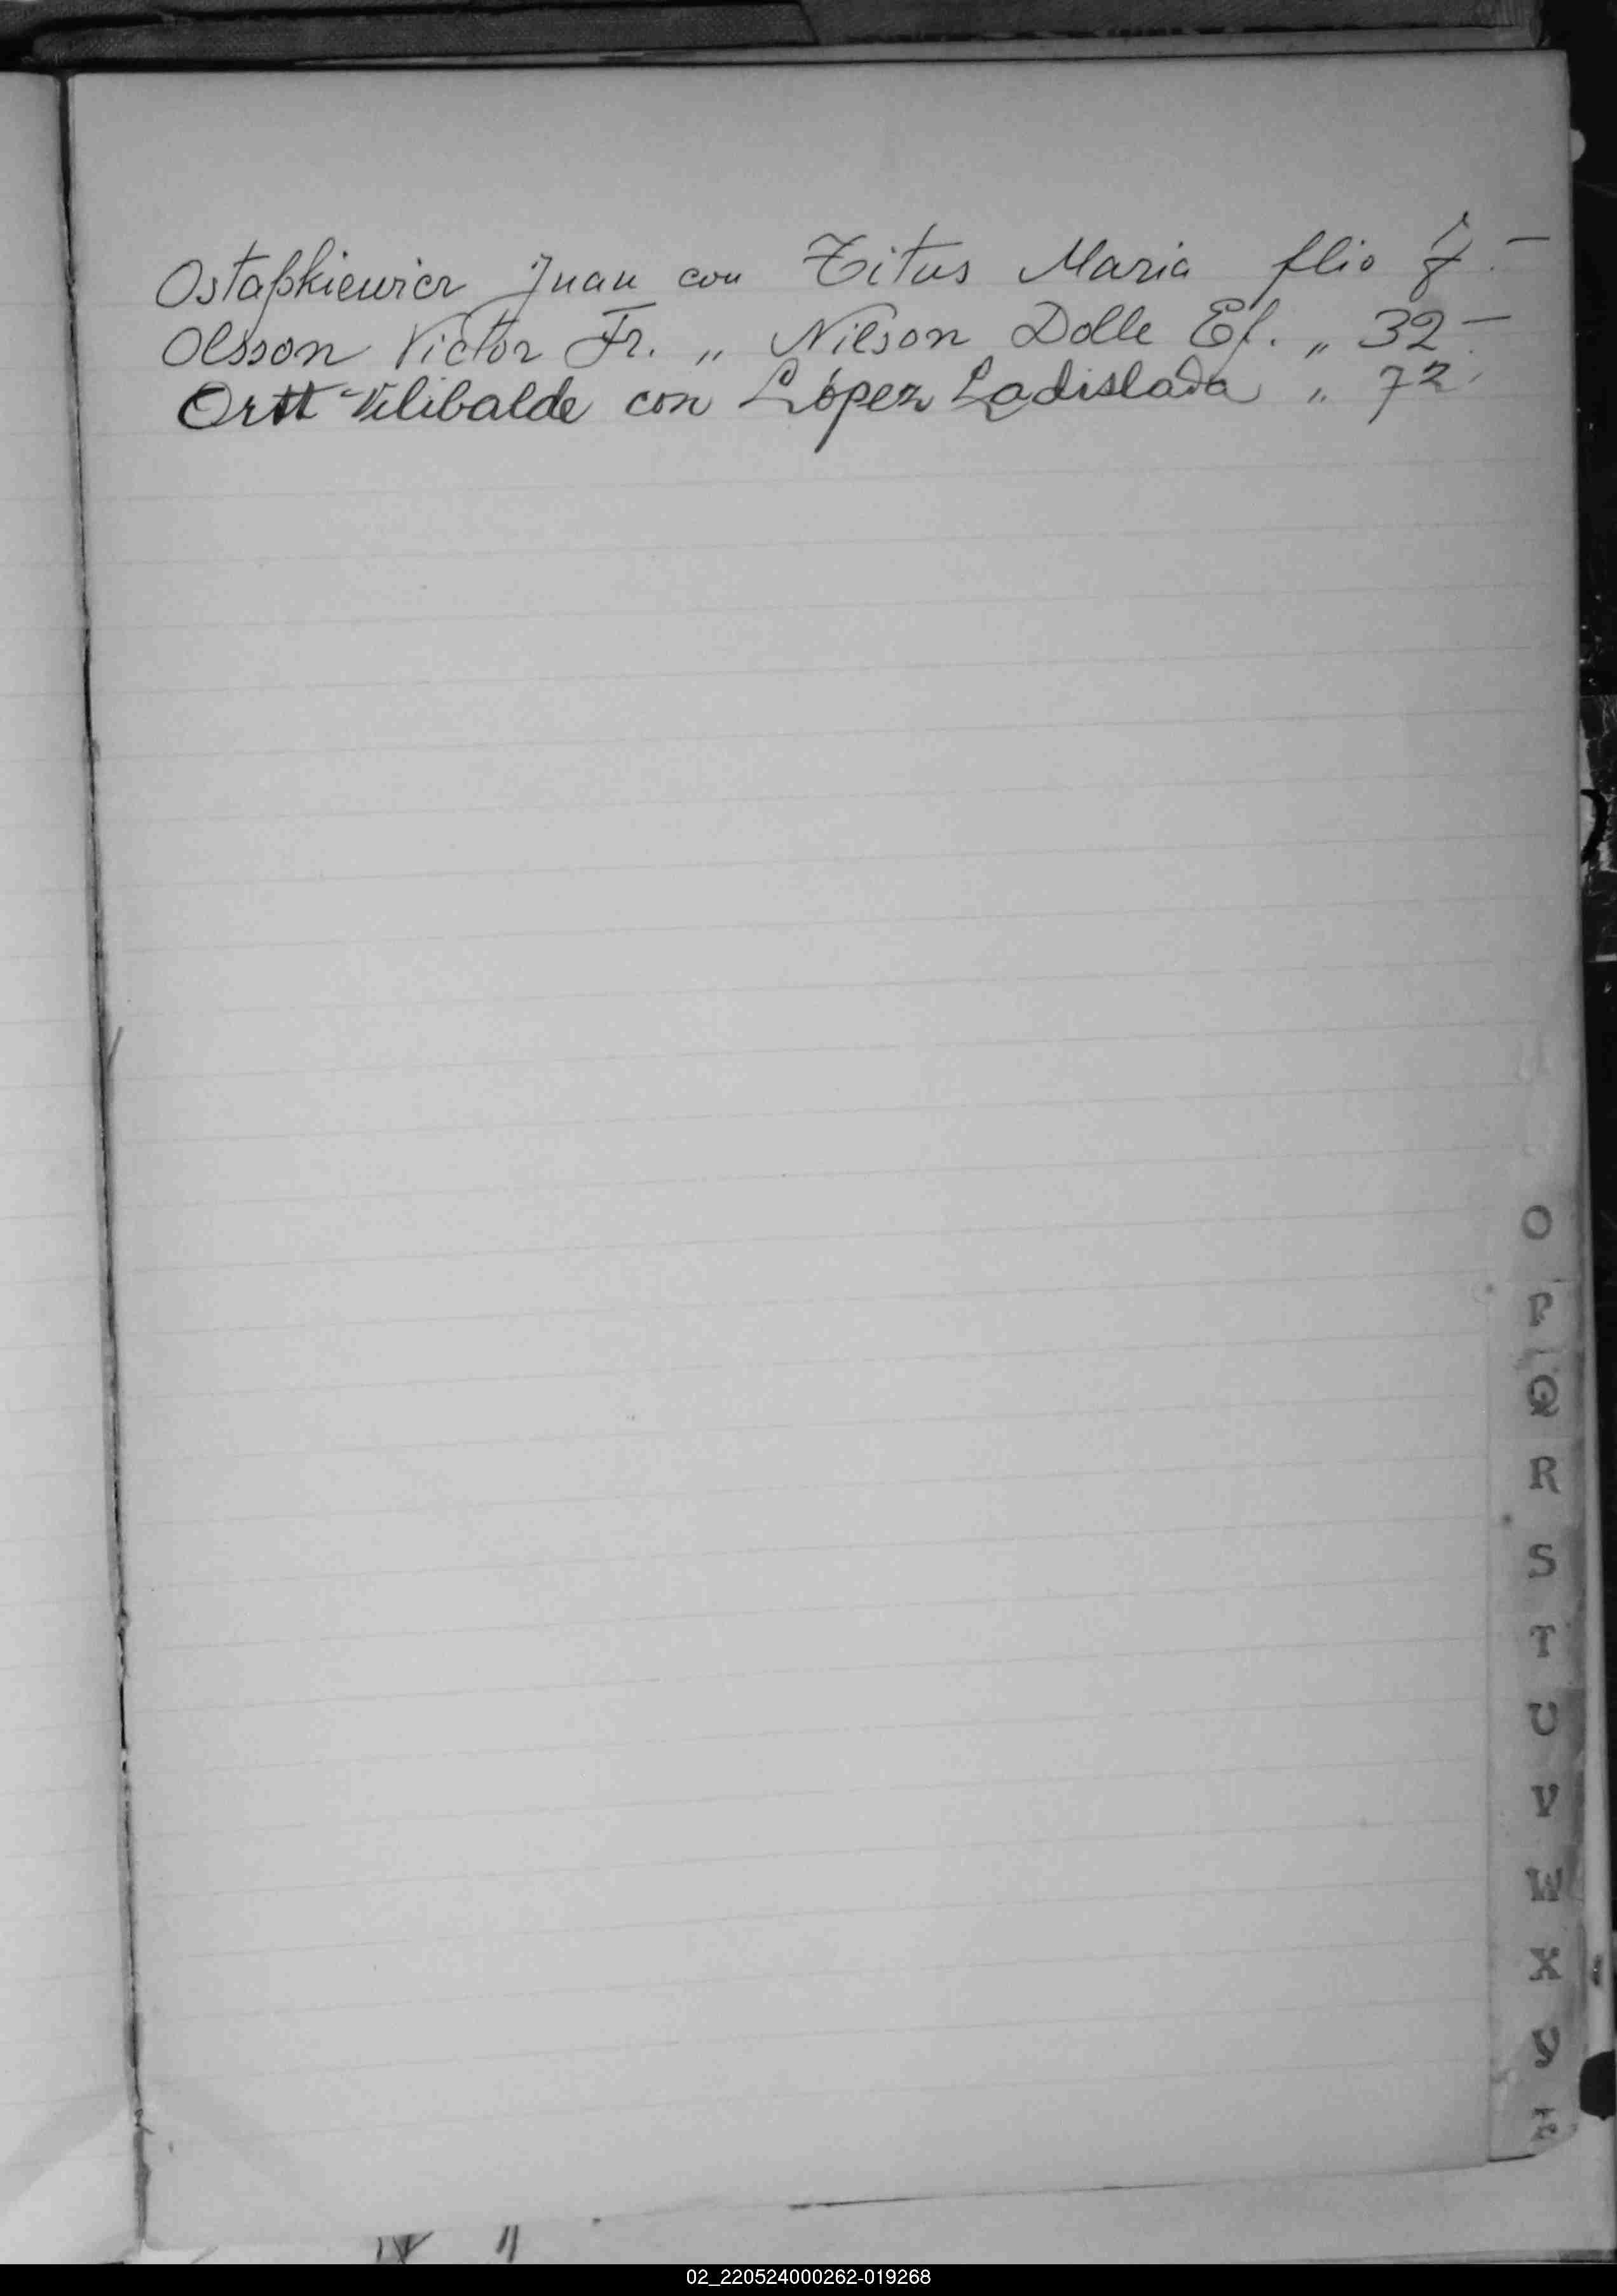 Ostapkiewicz Juan con Titus Maria flio 8.-
Olsson Victor Fr. „ Nilson Dolle Ef. „ 32-
Ortt Vilibalde con López Ladislada „ 72.
O
P
Q
R
S
T
U
V
W
X
Y
Z
02_220524000262-019268